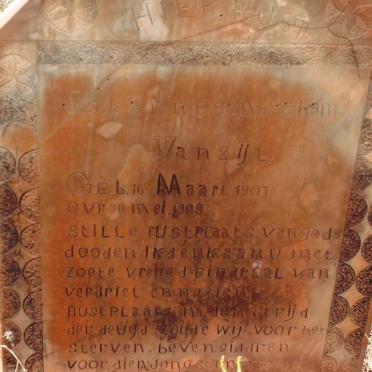 HIER RUST
Johannes Abraham
Van zijl
GEb. 16 Maart 1907
OVr 30 mei 1909
stille rustplaats van gods
dooden Ik denk aan u met
zoete vreugd Eindpaal van
verdriet en noden
Rustplaats na den strijd
der deugd zoude wij voor het
sterven. beven sidren
voor